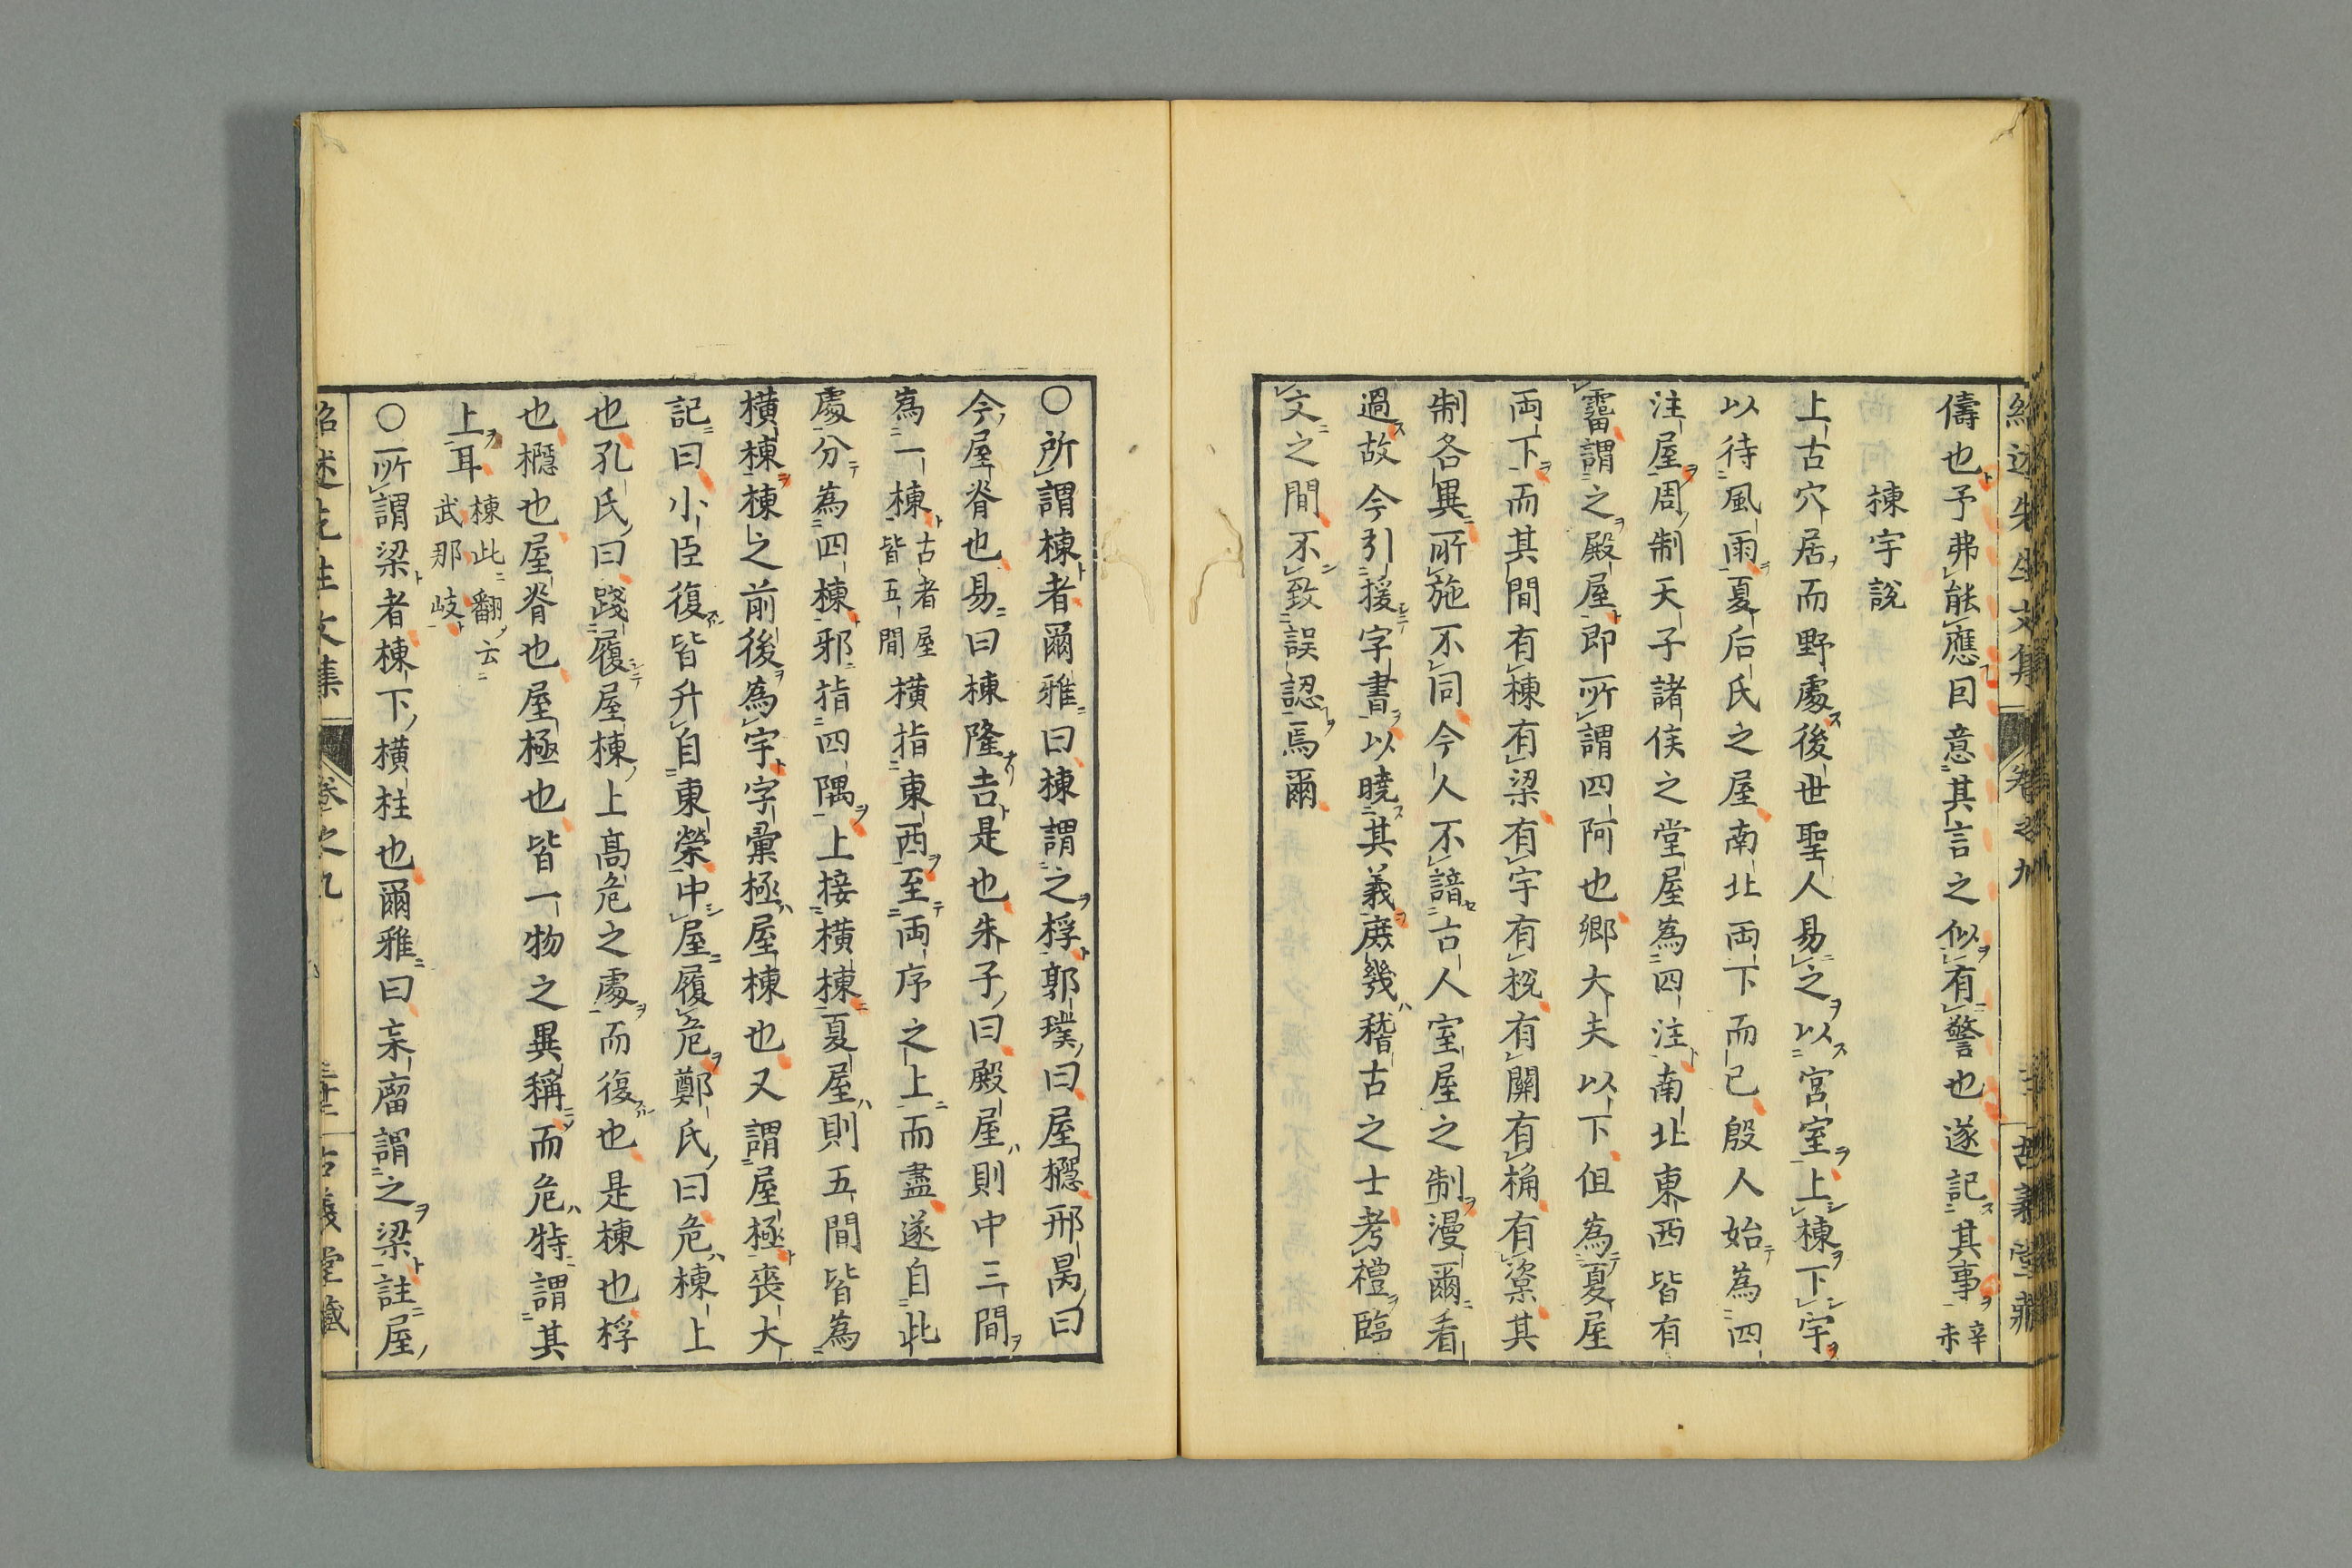 儔也予弗能應曰意其言之似有警也遂記其事辛未
棟宇說
上古穴居而野處後世聖人易之以宮室上棟下宇
以待風雨夏后氏之屋南北兩下而已殷人始為四
注屋周制天子諸侯之堂屋為四注南北東西皆有
霤謂之殿屋即所謂四阿也卿大夫以下但為夏屋
兩下而其間有棟有梁有宇有棁有闑有桷有楶其
制各異所施不同今人不諳古人室屋之制漫爾看
過故今引援字書以曉其義庶幾稽古之士考禮臨
文之間不致誤認焉爾
〇所謂棟者爾雅曰棟謂之桴郭璞曰屋檼邢昺曰
今屋脊也易曰棟隆吉是也朱子曰殿屋則中三間
為一棟古者屋皆五間橫指東西至兩序之上而盡遂自此
處分為四棟邪指四隅上接橫棟夏屋則五間皆為
橫棟棟之前後為宇字彙極屋棟也又謂屋極喪大
記曰小臣復皆升自東榮中屋履危鄭氏曰危棟上
也孔氏曰踐履屋棟上高危之處而復也是棟也桴
也檼也屋脊也屋極也皆一物之異稱而危特謂其
上耳棟此翻云武那岐
〇所謂梁者棟下橫柱也爾雅曰杗廇謂之梁註屋
紹述先生文集
卷之九
古義堂藏